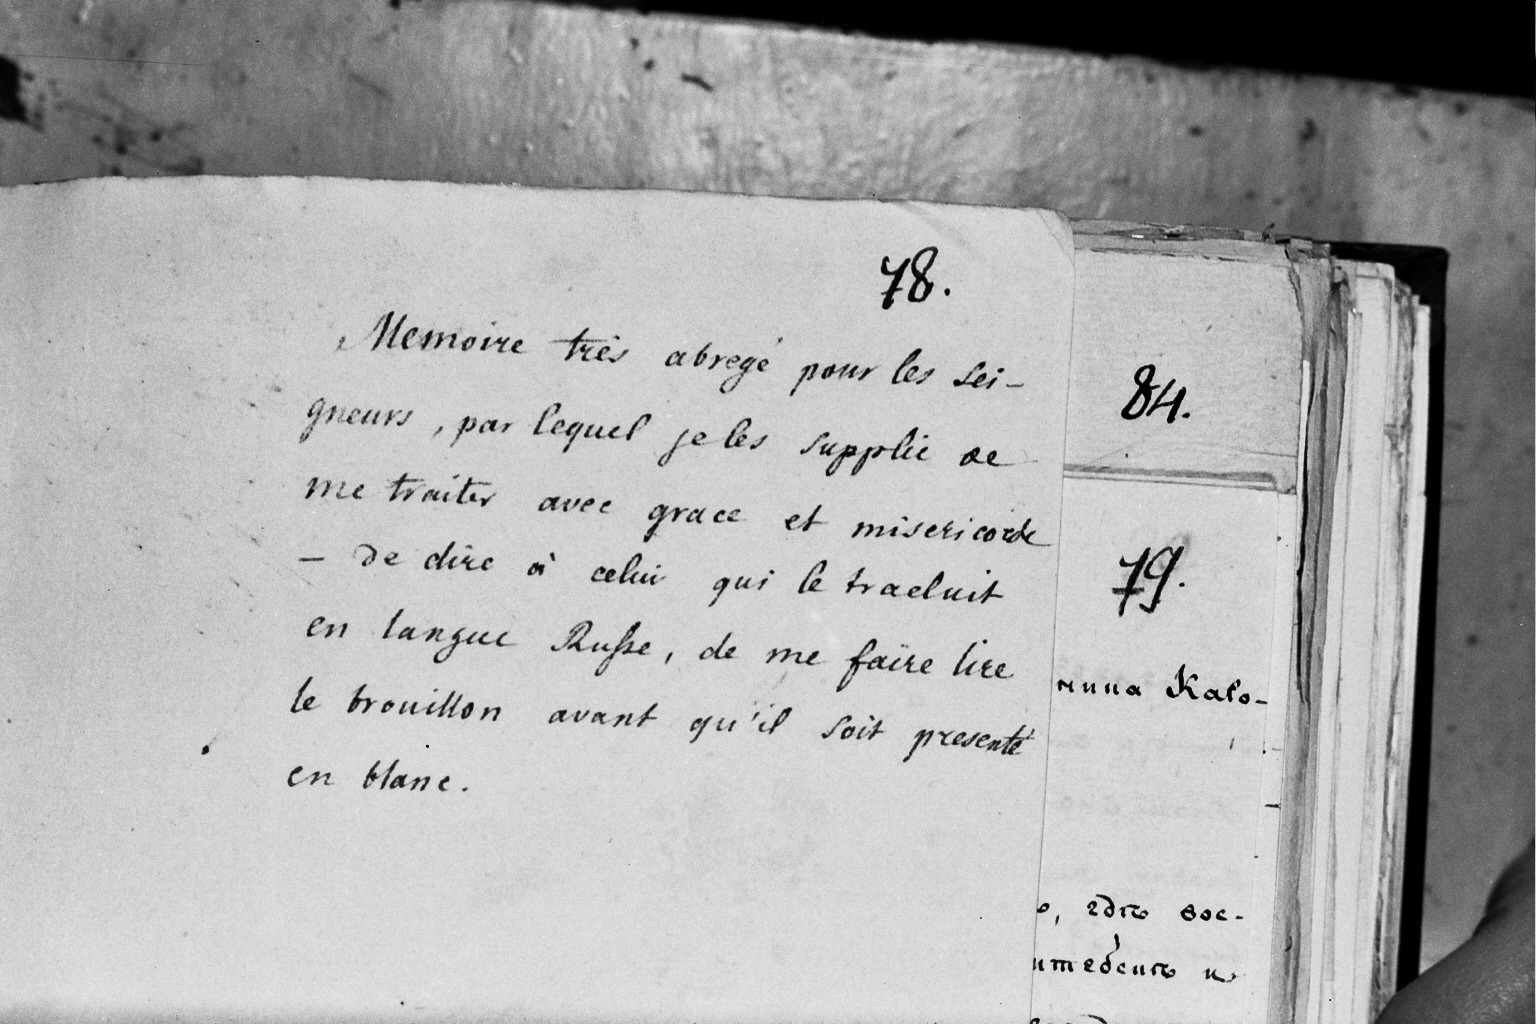 78.
Memoire très abregé pour les sei-
gneurs, par lequel je les supplie de
me traiter avec grace et misericorde
- de dire à celui qui le traduit
en langue Russe, de me faire lire
le brouillon avant qu'il soit presenté
en blanc.
84.
79.
Kalo-
вос-
и